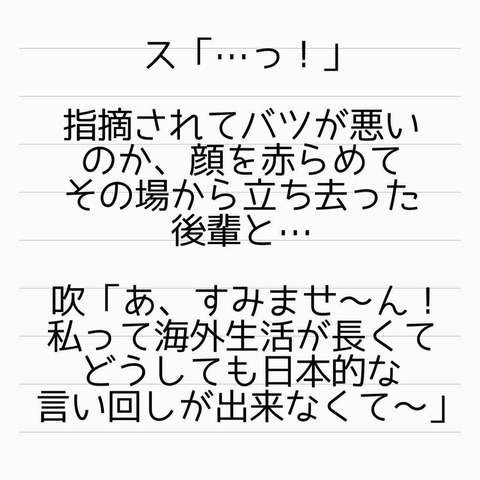 ス「…っ！」
指摘されてバツが悪い
のか、顔を赤らめて
その場から立ち去った
後輩と…
吹「あ、すみませ～ん！
私って海外生活が長くて
どうしても日本的な
言い回しが出来なくて～」